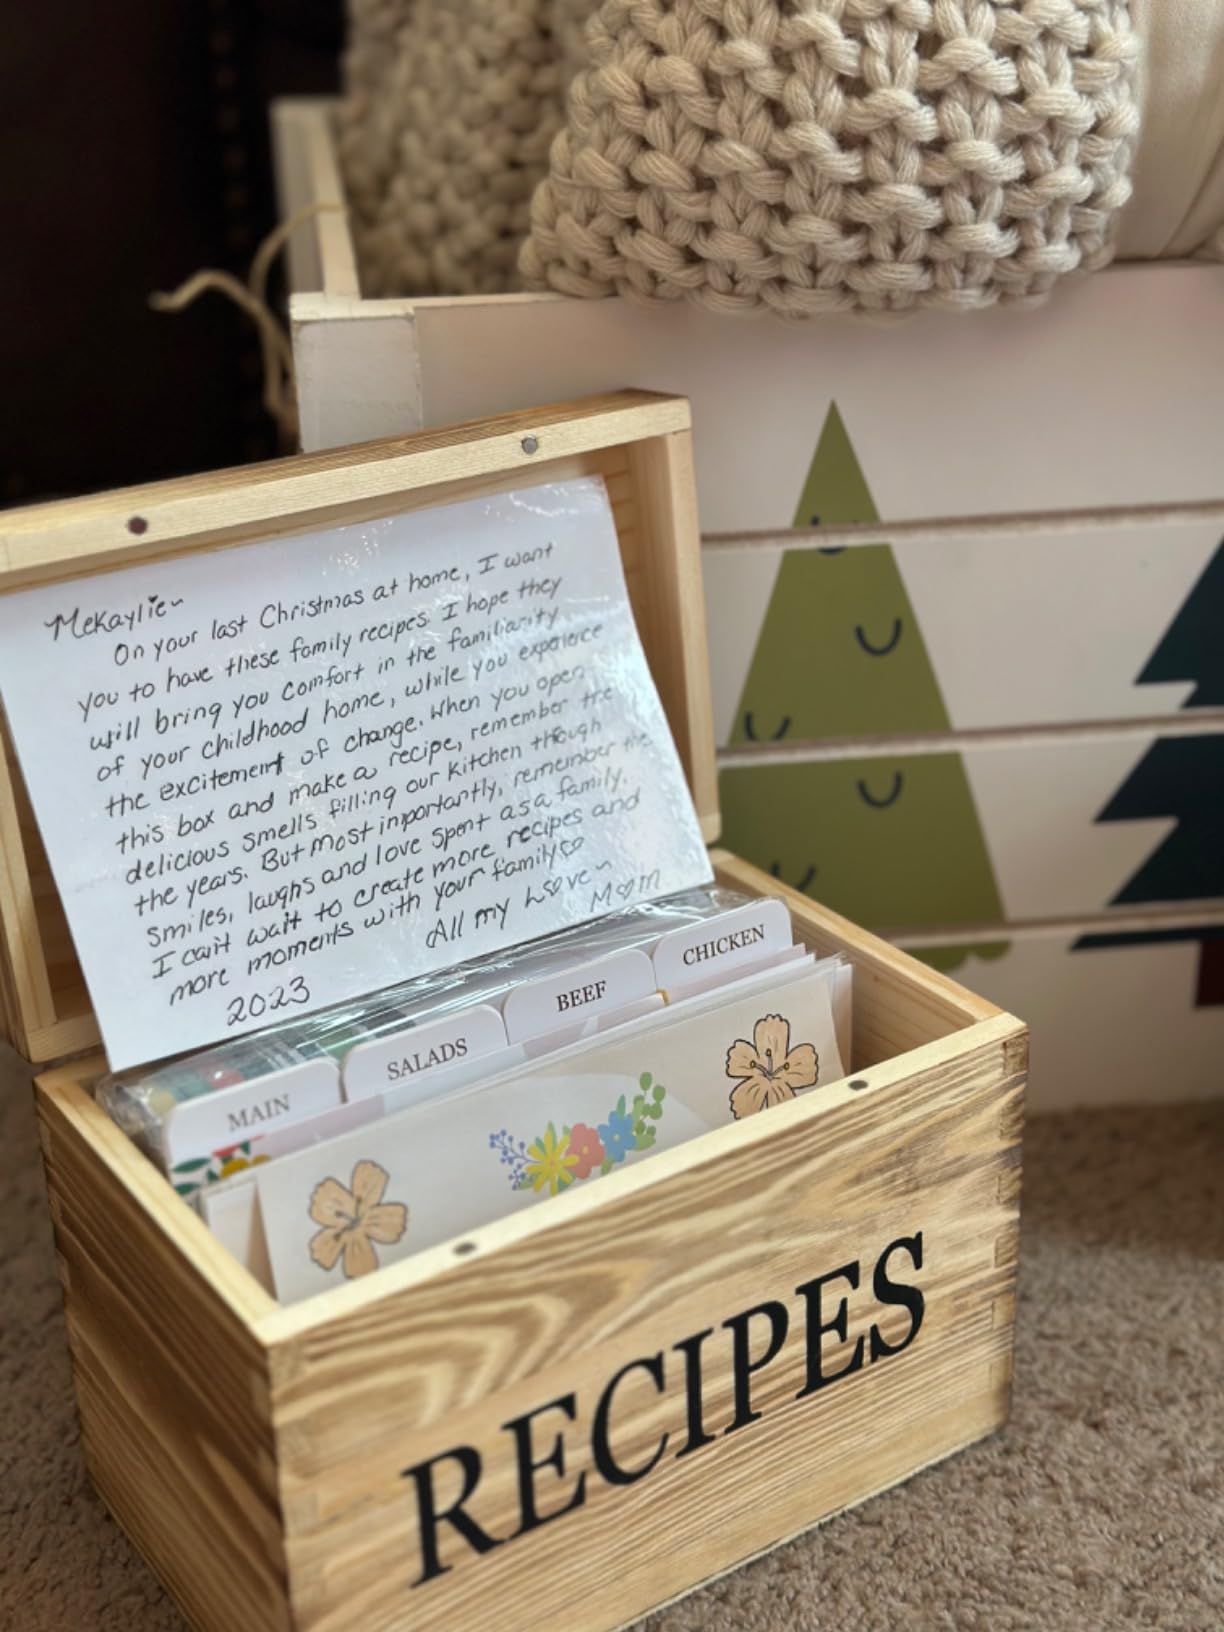 McKaylie~
On your last Christmas at home, I want
you to have these family recipes. I hope they
will bring you comfort in the familiarity
of your childhood home, while you experience
the excitement of change. When you open
this box and make a recipe, remember the
delicious smells filling our kitchen though
the years. But most importantly, remember the
smiles, laughs and love spent as a family.
I can't wait to create more recipes and
more moments with your family♡
All my Love~
Mom
2023
CHICKEN
BEEF
SALADS
MAIN
RECIPES